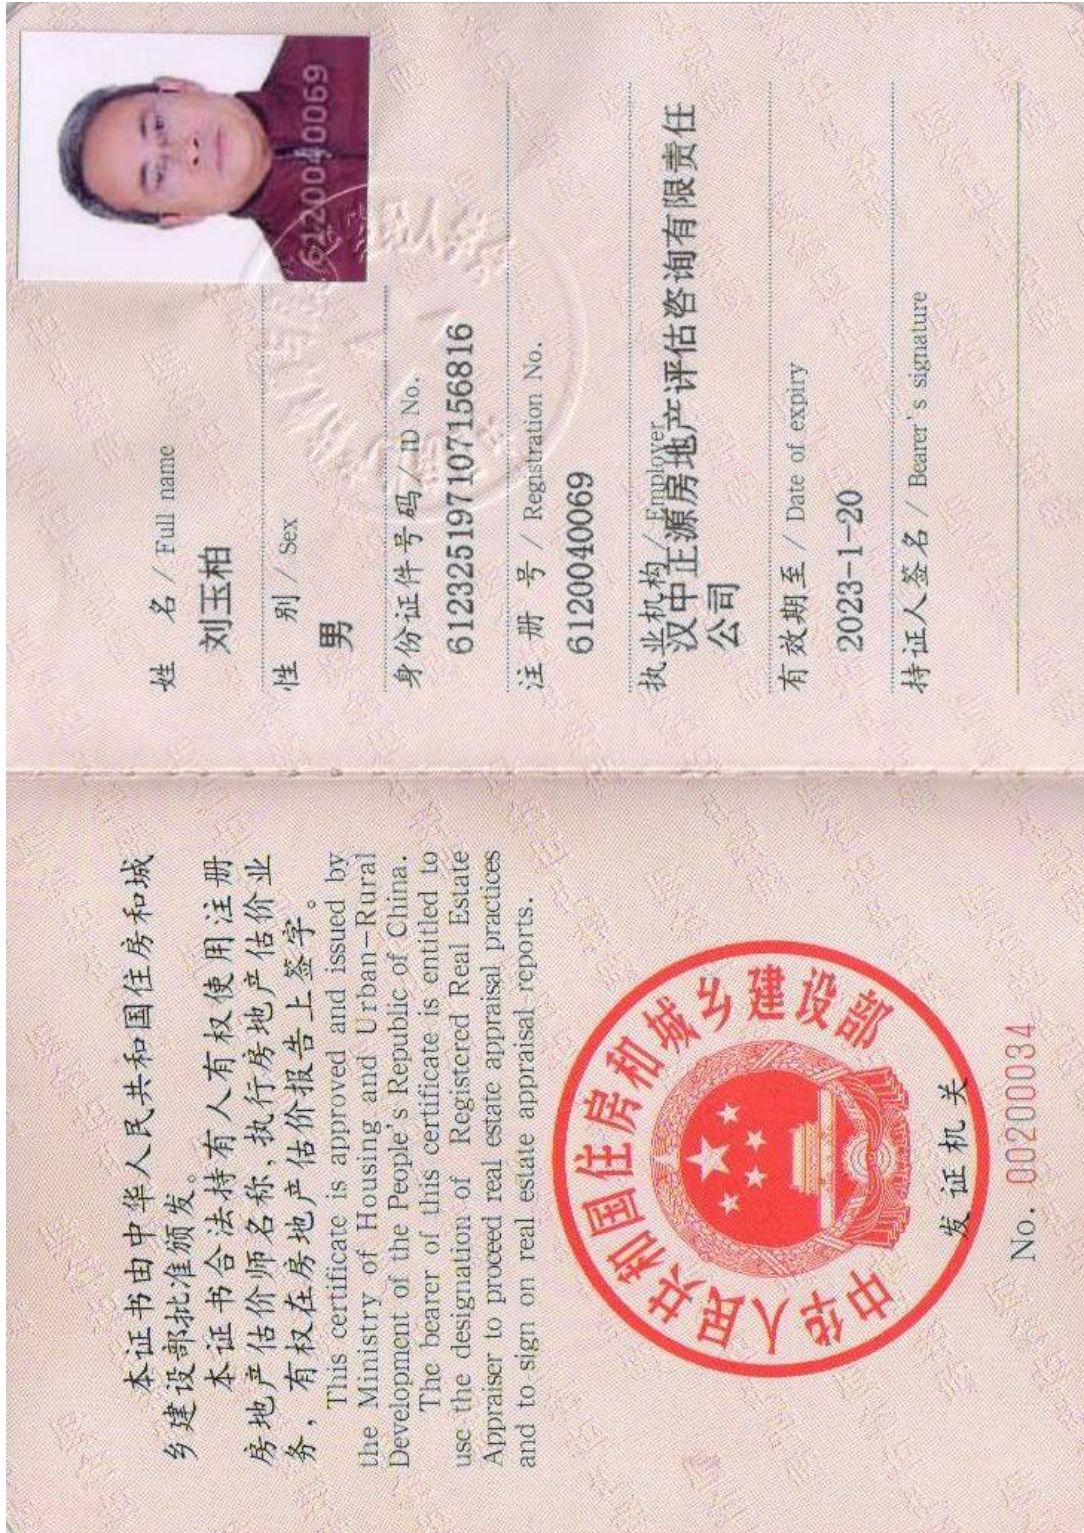 本证书由中华人民共和国住房和城
乡建设部批准颁发。
本证书合法持有人有权使用注册
房地产估价师名称，执行房地产估价业
务，有权在房地产估价报告上签字。
This certificate is approved and issued by
the Ministry of Housing and Urban-Rural
Development of the People's Republic of China.
The bearer of this certificate is entitled to
use the designation of Registered Real Estate
Appraiser to proceed real estate appraisal practices
and to sign on real estate appraisal reports.
中华人民共和国住房和城乡建设部
发证机关
No. 00200034
姓 名 / Full name
刘玉柏
性 别 / Sex
男
身份证件号码 / ID No.
612325197107156816
注 册 号 / Registration No.
6120040069
执业机构 / Employer
汉中正源房地产评估咨询有限责任
公司
有效期至 / Date of expiry
2023-1-20
持证人签名 / Bearer's signature
6120040069